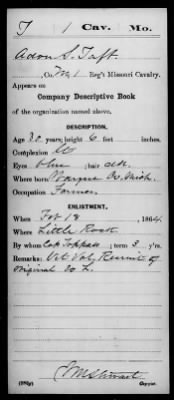 T 1 Cav. Mo.
Adon S. Taft
, Co. M, 1 Reg't Missouri Cavalry.
Appears on
Company Descriptive Book
of the organization named above.
DESCRIPTION.
Age 30 years; height 6 feet inches.
Complexion lt
Eyes blue; hair dk.
Where born Wayne Co. Mich.
Occupation Farmer
ENLISTMENT.
When Feb 18, 1864.
Where Little Rock
By whom Cap Toppass; term 3 y'rs.
Remarks: Vet Vol, Recruit of
Original Co L.
Copyist.